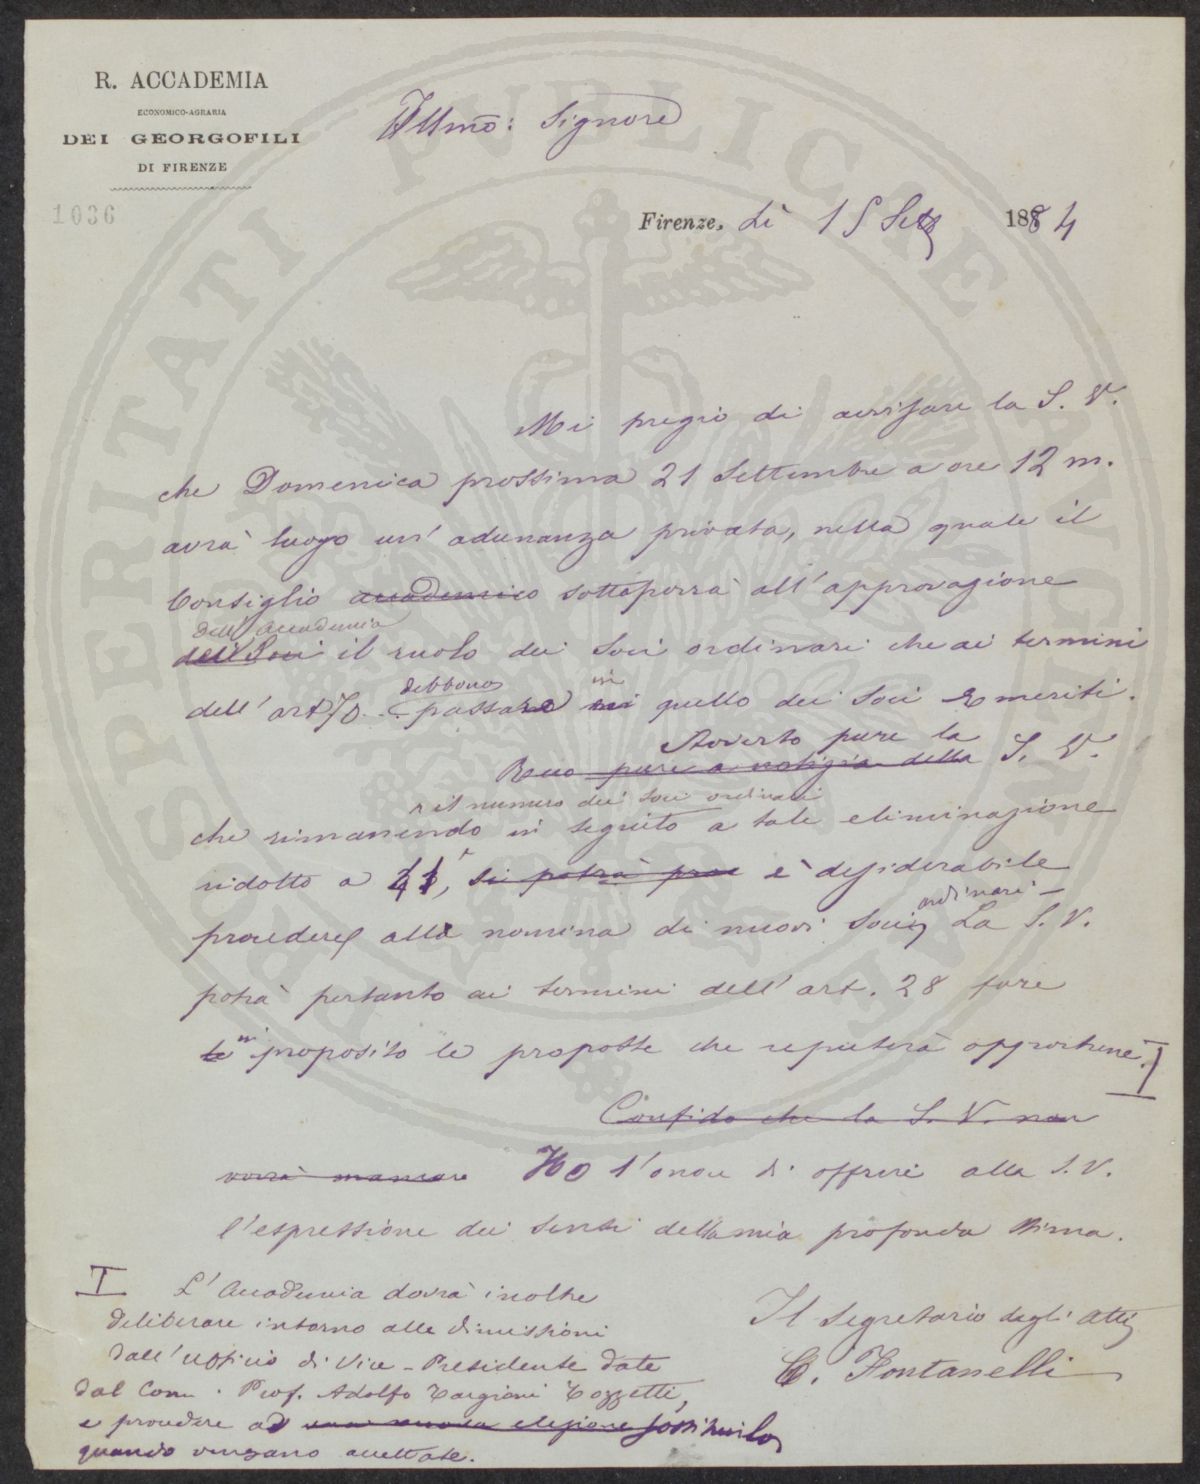 R. ACCADEMIA
ECONOMICO-AGRARIA
DEI GEORGOFILI
DI FIRENZE
1036
PROSPERITATI PVBLICAE AVGENDAE
Illmo: Signore
Firenze, Li 15 Sett 1884
Mi pregio di avvisare la S. V.
che Domenica prossima 21 Settembre a ore 12 m.
avrà luogo un' adunanza privata, nella quale il
Consiglio accademico sottoporrà all'approvazione
dell'Accademia
dell Soci il ruolo dei Soci ordinari che ai termini
debbono in
dell' art. passare quello dei Soci Emeriti.
Avverto pure la
Reco pure a notizia della S. V.
il numero dei Soci ordinari
che rimanendo in seguito a tale eliminazione
ridotto a si potrà è desiderabile
ordinari
procedere alla nomina di nuovi Soci La S. V.
potrà pertanto ai termini dell' art. 28 fare
in proposito le proposte che reputerà opportune. I
Confido che la S. V. non
vorrà mancare Ho l'onore di offrire alla S. V.
l'espressione dei sensi della mia profonda stima.
I L'Accademia dovrà inoltre
deliberare intorno alle dimissioni
dall'Ufficio di Vice-Presidente date
dal Com. Prof. Adolfo Targioni Tozzetti,
e provvedere ad una nuova elezione sostituirlo
quando vengano accettate.
Il Segretario degli Atti
C. Fontanelli